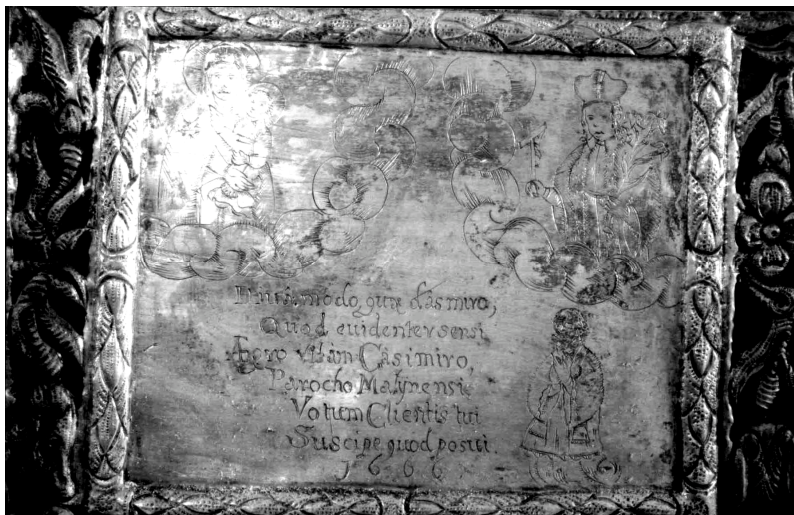 modo, qune Casmiro,
Quod euidenter sensi
Agro vitam Casimiro,
Parocho Malynensi
Votum Clientis tui
Suscipe, quod posui
1666